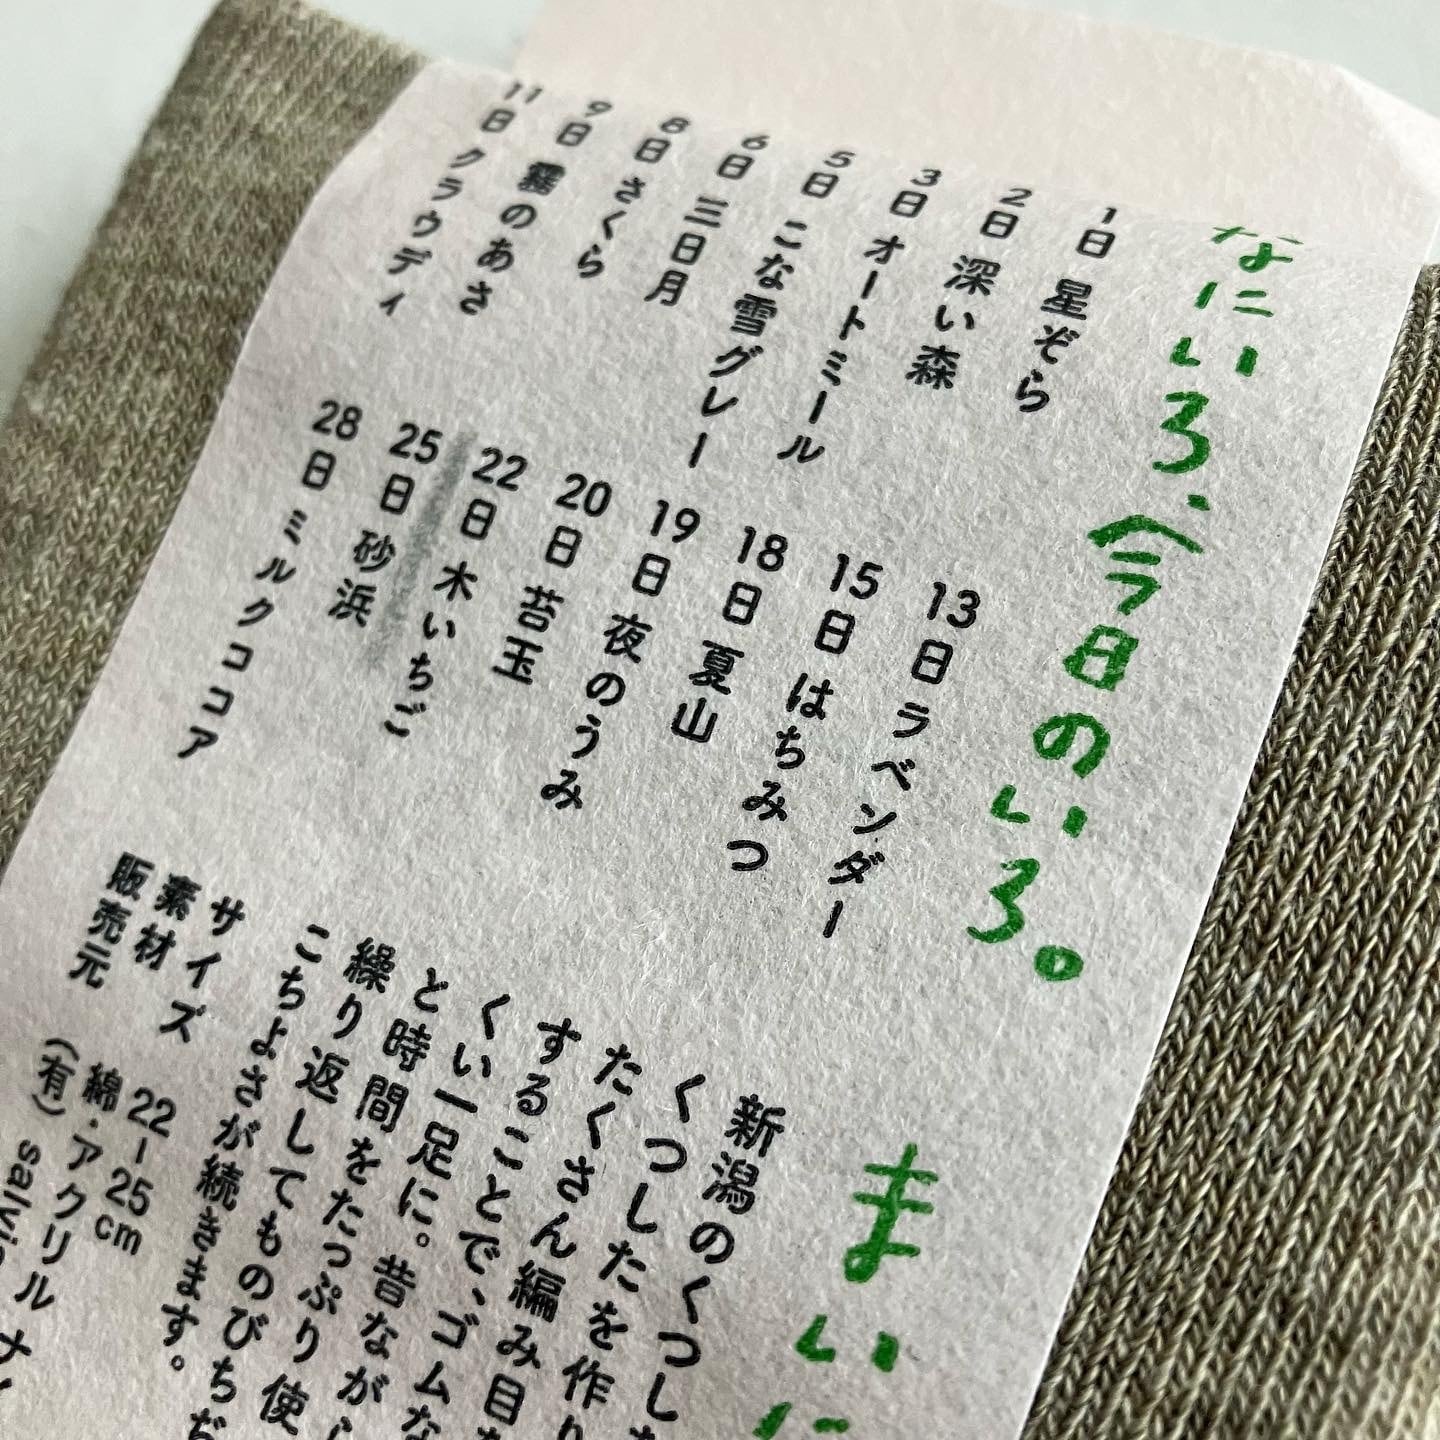 なにいろ、今日のいろ。
1日 星ぞら
2日 深い森
3日 オートミール
5日 こな雪グレー
6日 三日月
8日 さくら
9日 霧のあさ
11日 クラウディ
13日 ラベンダー
15日 はちみつ
18日 夏山
19日 夜のうみ
20日 苔玉
22日 木いちご
25日 砂浜
28日 ミルクココア
まいに
新潟のくつした
くつしたを作り
たくさん編み目
することで、ゴムな
くい一足に。昔なが
と時間をたっぷり使
繰り返してものびちぢ
こちよさが続きます。
サイズ 22-25cm
素材 綿・アクリル
販売元 (有)